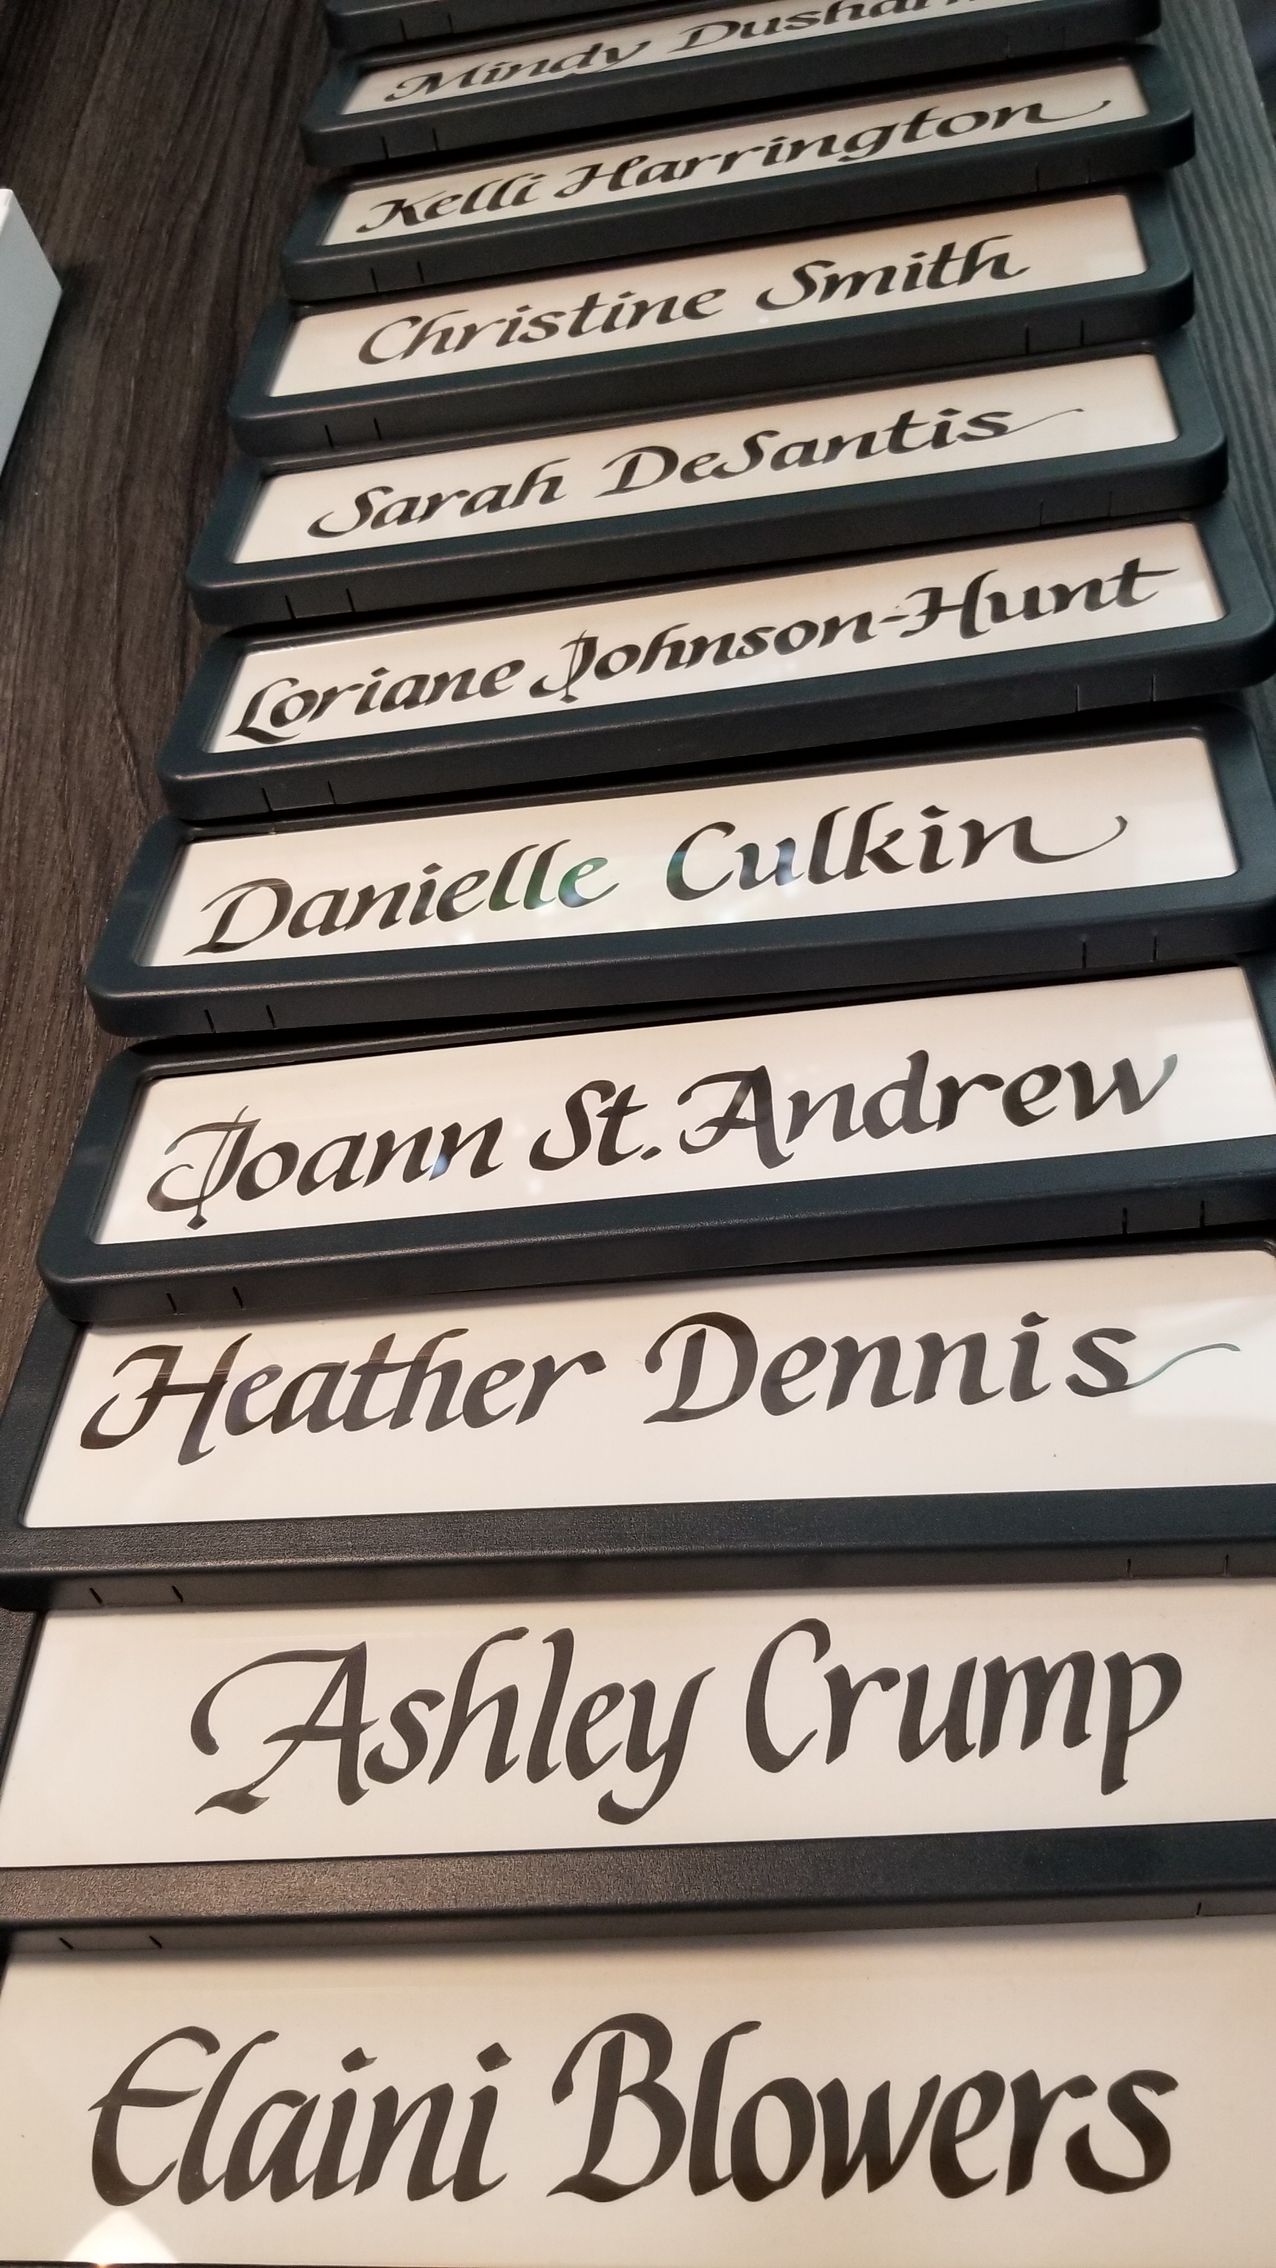 Mindy
Kelli Harrington
Christine Smith
Sarah DeSantis
Loriane Johnson-Hunt
Danielle Culkin
Joann St. Andrew
Heather Dennis
Ashley Crump
Elaini Blowers